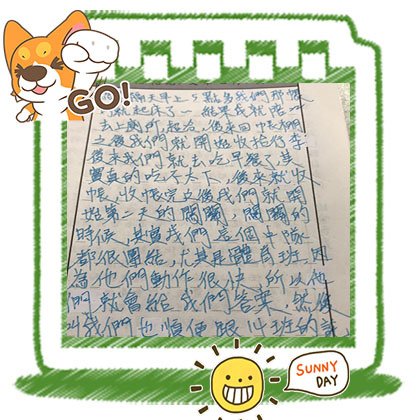 GO!
隔天早上5點多我們那帳
就起床了,結果我就陪
去上廁所起.後來回帳棚
之後我們就開始收拾行李
後來我們就去吃早餐了其
實真的吃不大下,後來就收
帳,收帳完之後我們就開
始第二天的闖關,闖關的
時候,其實我們這個中隊
都很團結,尤其是體育班,因
為他們動作很快,所以他
們就會給我們答案,然後
我們也順便跟叫班的
SUNNY
DAY